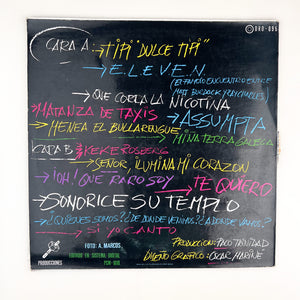 DRO-095
CARA A:
→TIPI "DULCE TIPI"
→E.L.E.V.E.N.
(EL FAMOSO ENCUENTRO ENTRE
MATT BURDOCK Y RAY CHARLES)
→QUE CORRA LA NICOTINA
MATANZA DE TAXIS
→ASSUMPTA
→MENEA EL BULLARENGUE
→MI NA TERRA GALEGA
CARA B:
KEKE ROSBERG
→SEÑOR, ILUMINA MI CORAZON
→¡OH! QUE RARO SOY
→TE QUIERO
→SONORICE SU TEMPLO
→¿QUIENES SOMOS? ¿DE DONDE VENIMOS? ¿A DONDE VAMOS?
→SI YO CANTO
PRODUCCIONES
FOTO: A. MARCOS
EDITADO EN SISTEMA DIGITAL
PCM-1610
PRODUCCION: PACO TRINIDAD
DISEÑO GRAFICO: OSCAR MARINE